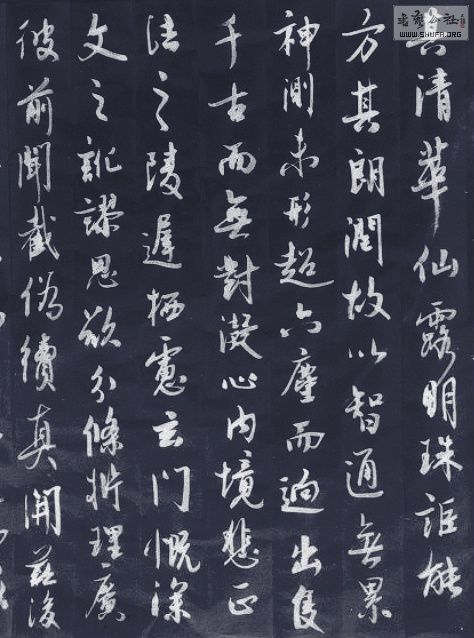 其清華仙露明珠詎能
方其朗潤故以智通無累
神測未形超六塵而逈出隻
千古而無對凝心內境悲正
法之陵遲栖慮玄門慨深
文之訛謬思欲分條析理廣
彼前聞截偽續真開茲後
公社
WWW.SHUFA.ORG